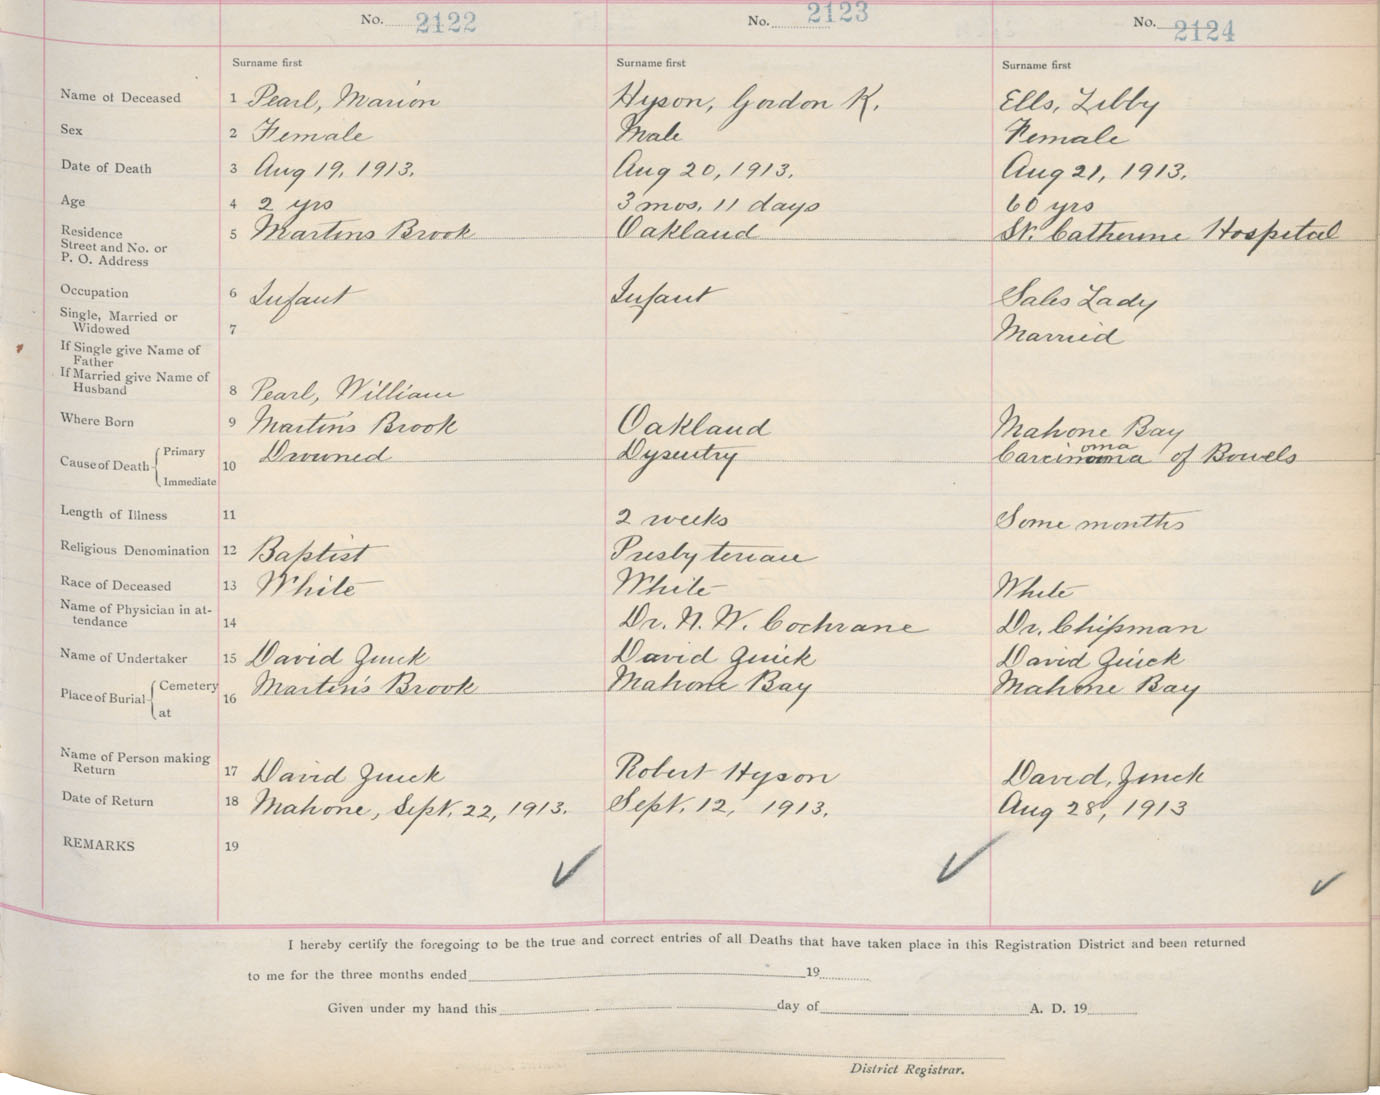 No. 2122 No. 2123 No. 2124
Surname first Surname first Surname first
Name of Deceased 1 Pearl, Marion Hyson, Gordon K. Ells, Libby
Sex 2 Female Male Female
Date of Death 3 Aug 19, 1913. Aug 20, 1913. Aug 21, 1913.
Age 4 2 yrs 3 mos. 11 days 60 yrs
Residence 5 Martins Brook Oakland St. Catherine Hospital
Street and No. or
P. O. Address
Occupation 6 Infant Infant Sales Lady
Single, Married or
Widowed 7 Married
If Single give Name of
Father
If Married give Name of
Husband 8 Pearl, William
Where Born 9 Martin's Brook Oakland Mahone Bay
Cause of Death Primary 10 Drowned Dysentry Carcinoma of Bowels
Immediate
Length of Illness 11 2 weeks Some months
Religious Denomination 12 Baptist Presbyterian
Race of Deceased 13 White White White
Name of Physician in at-
tendance 14 Dr. N. W. Cochrane Dr. Chipman
Name of Undertaker 15 David Zinck David Zinck David Zinck
Place of Burial Cemetery 16 Martin's Brook Mahone Bay Mahone Bay
at
Name of Person making
Return 17 David Zinck Robert Hyson David, Zinck
Date of Return 18 Mahone, Sept. 22, 1913. Sept. 12, 1913. Aug 28, 1913
REMARKS 19
I hereby certify the foregoing to be the true and correct entries of all Deaths that have taken place in this Registration District and been returned
to me for the three months ended 19
Given under my hand this day of A. D. 19
District Registrar.